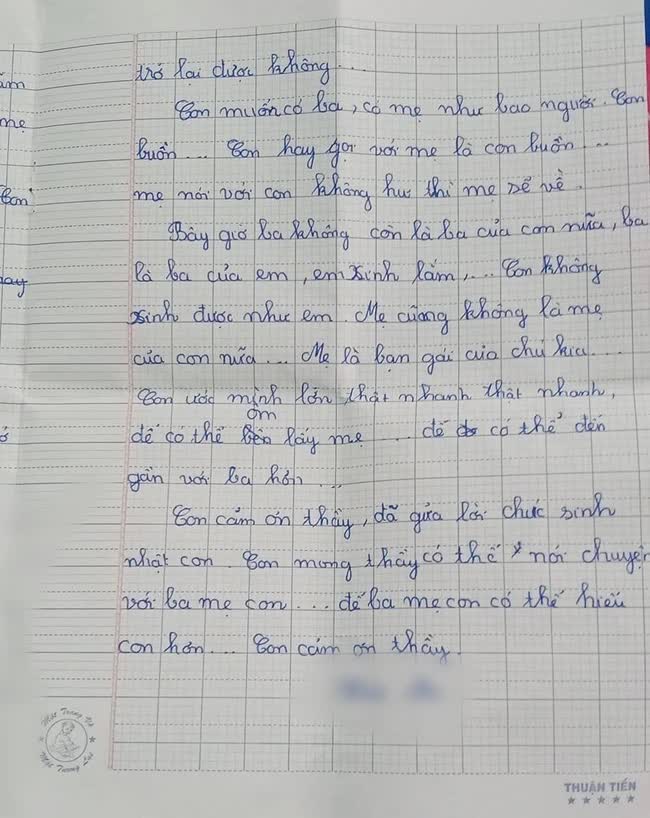 ăm
mẹ
Con
nay
trở lại được không....
Con muốn có ba, có mẹ như bao người. Con
buồn... Con hay gọi với mẹ là con buồn...
mẹ nói với con không hư thì mẹ sẽ về.
Bây giờ ba không còn là ba của con nữa, ba
là ba của em, em xinh lắm,... Con không
xinh được như em. Mẹ cũng không là mẹ
của con nữa... Mẹ là bạn gái của chú kia...
Con ước mình lớn thật nhanh thật nhanh,
để có thể ôm lấy mẹ ... để có thể đến
gần với ba hơn...
Con cảm ơn thầy, đã gửa lời chúc sinh
nhật con. Con mong thầy có thể nói chuyện
với ba mẹ con... để ba mẹ con có thể hiểu
con hơn... Con cảm ơn thầy.
Một Trang Vở
Một Tương Lai
THUẬN TIẾN